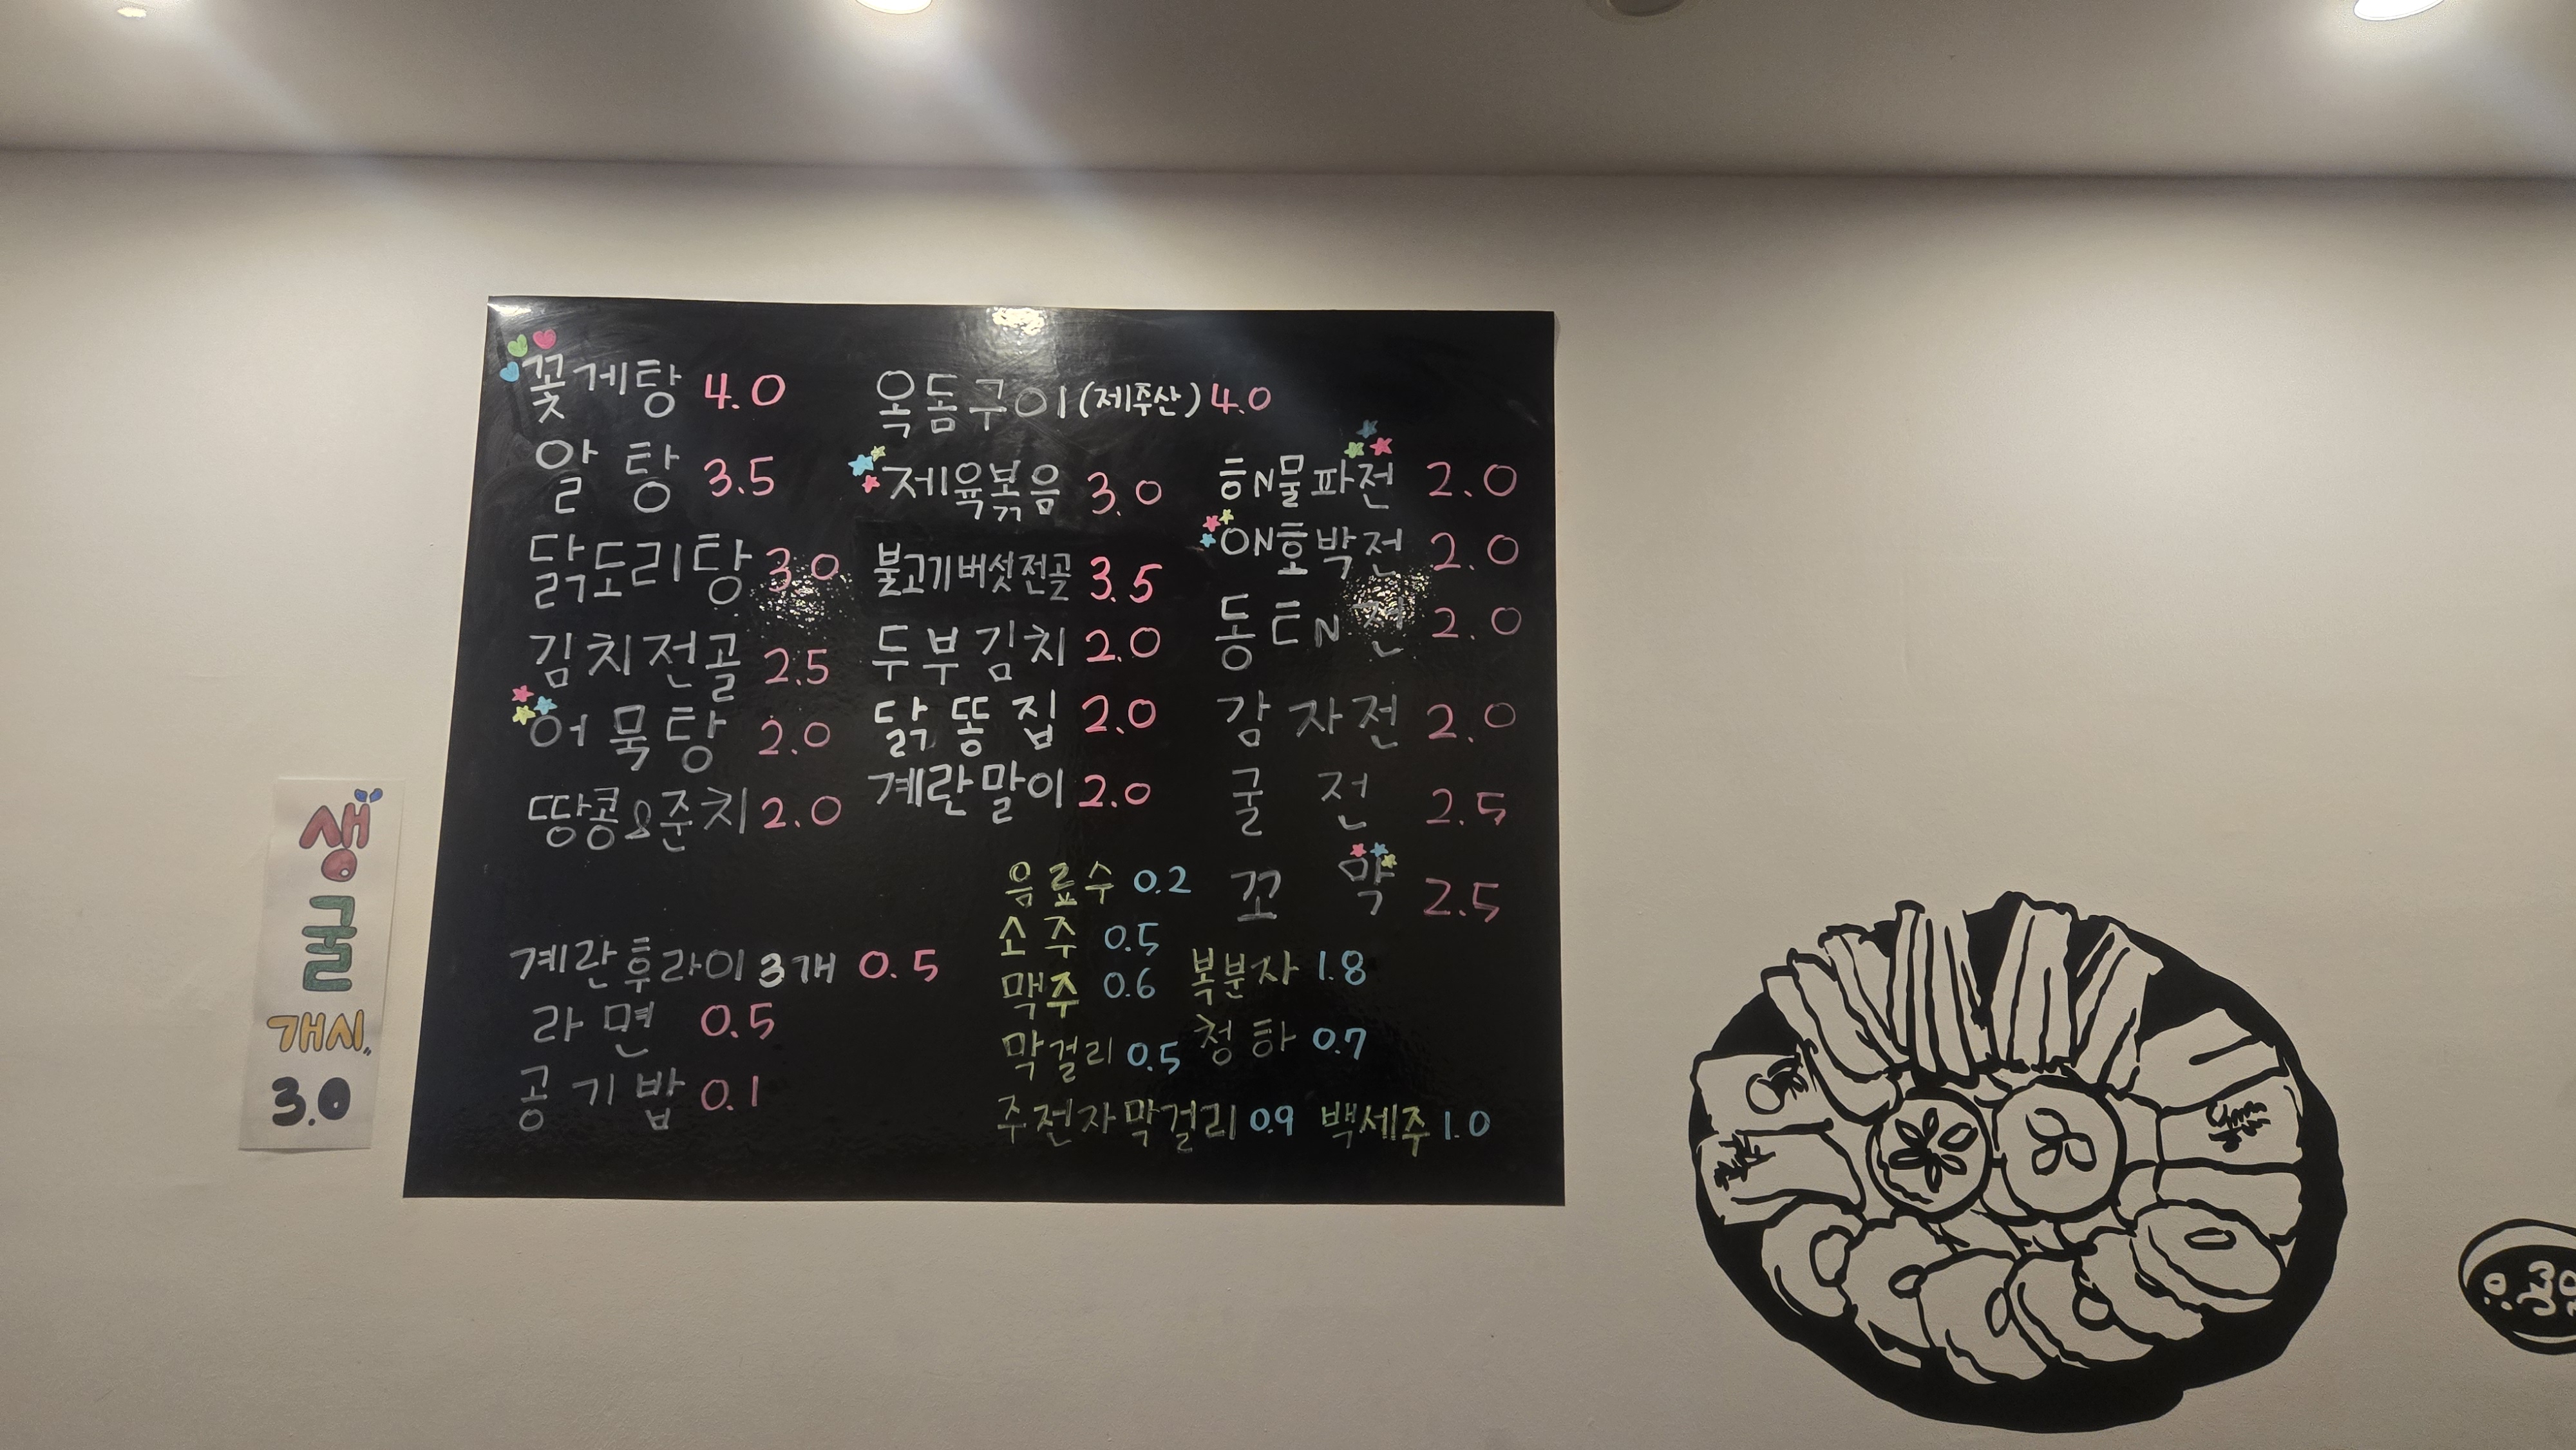 꽃게탕 4.0
알탕 3.5
닭도리탕 3.0
김치전골 2.5
어묵탕 2.0
땅콩&준치 2.0
계란후라이 3개 0.5
라면 0.5
공기밥 0.1
옥돔구이(제주산) 4.0
제육볶음 3.0
불고기버섯전골 3.5
두부김치 2.0
닭똥집 2.0
계란말이 2.0
해물파전 2.0
애호박전 2.0
동태전 2.0
감자전 2.0
굴전 2.5
꼬막 2.5
음료수 0.2
소주 0.5
맥주 0.6
막걸리 0.5
주전자막걸리 0.9
복분자 1.8
청하 0.7
백세주 1.0
생
굴
개시
3.0